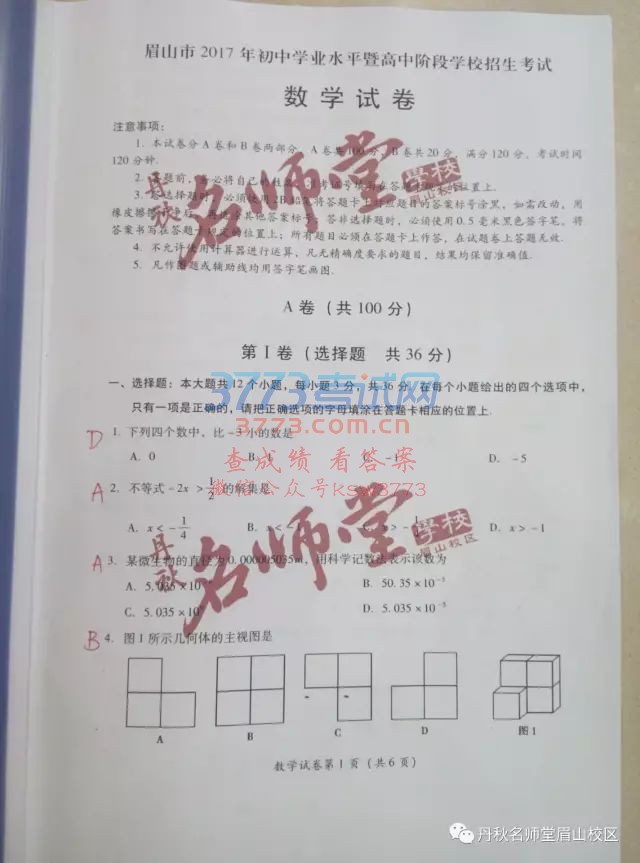 眉山市 2017 年初中学业水平暨高中阶段学校招生考试
数学试卷
注意事项:
1. 本试卷分 A 卷和 B 卷两部分,A 卷共100分,B 卷共20分,满分120分,考试时间
120分钟.
2. 答题前,务必将自己的姓名、准考证号填写在答题卡规定的位置上.
3. 答选择题时,必须使用2B铅笔将答题卡上对应题目的答案标号涂黑,如需改动,用
橡皮擦擦干净后,再选涂其他答案标号.答非选择题时,必须使用0.5毫米黑色签字笔,将
答案书写在答题卡规定的位置上;所有题目必须在答题卡上作答,在试题卷上答题无效.
4. 不允许使用计算器进行运算,凡无精确度要求的题目,结果均保留准确值.
5. 凡作图题或辅助线均用签字笔画图.
A 卷(共100分)
第Ⅰ卷(选择题 共36分)
一、选择题:本大题共12个小题,每小题3分,共36分,在每个小题给出的四个选项中,
只有一项是正确的,请把正确选项的字母填涂在答题卡相应的位置上.
D 1. 下列四个数中,比-3小的数是
A. 0 B. 1 C. -1 D. -5
A 2. 不等式-2x > 1/2 的解集是
A. x < -1/4 B. x < -1 C. x > -1/4 D. x > -1
A 3. 某微生物的直径为0.000005035m,用科学记数法表示该数为
A. 5.035×10 B. 50.35×10⁻⁵
C. 5.035×10 D. 5.035×10⁻⁵
B 4. 图1所示几何体的主视图是
A B C D 图1
数学试卷第1页(共6页)
丹秋名师堂学校
3773考试网
www.3773.com.cn
查成绩 看答案
微信公众号ksw3773
丹秋名师堂学校眉山校区
丹秋名师堂眉山校区